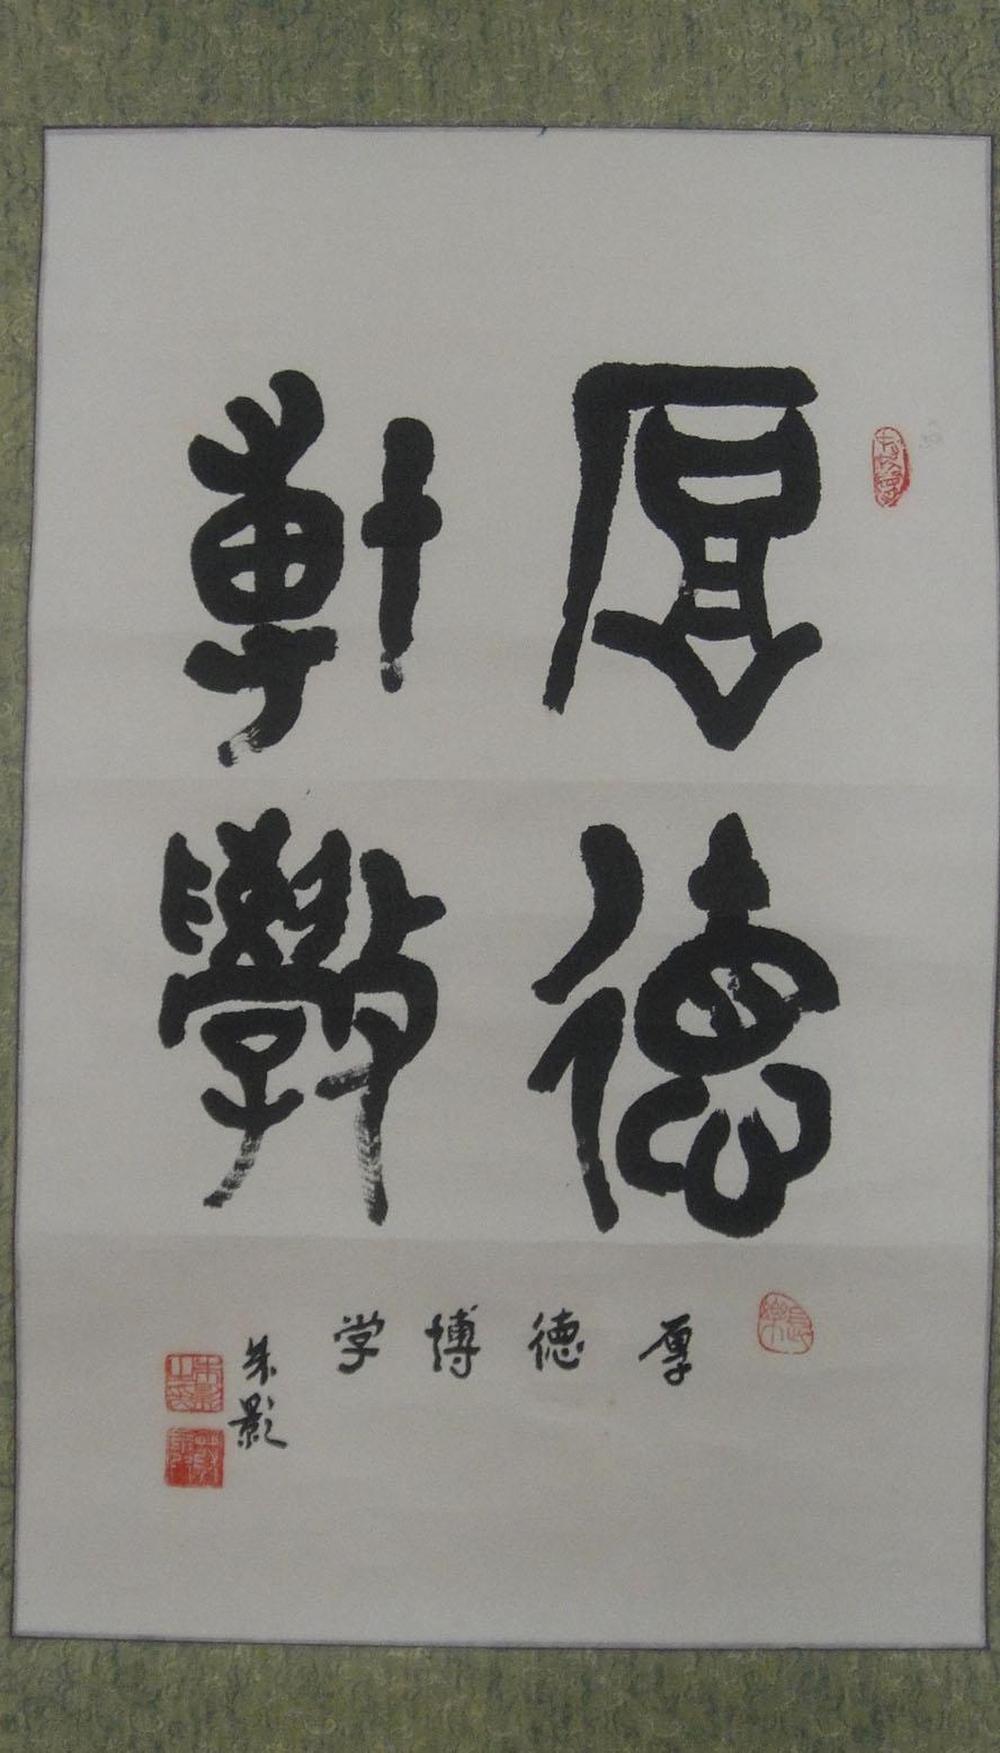 厚德
博學
厚德博学
朱影